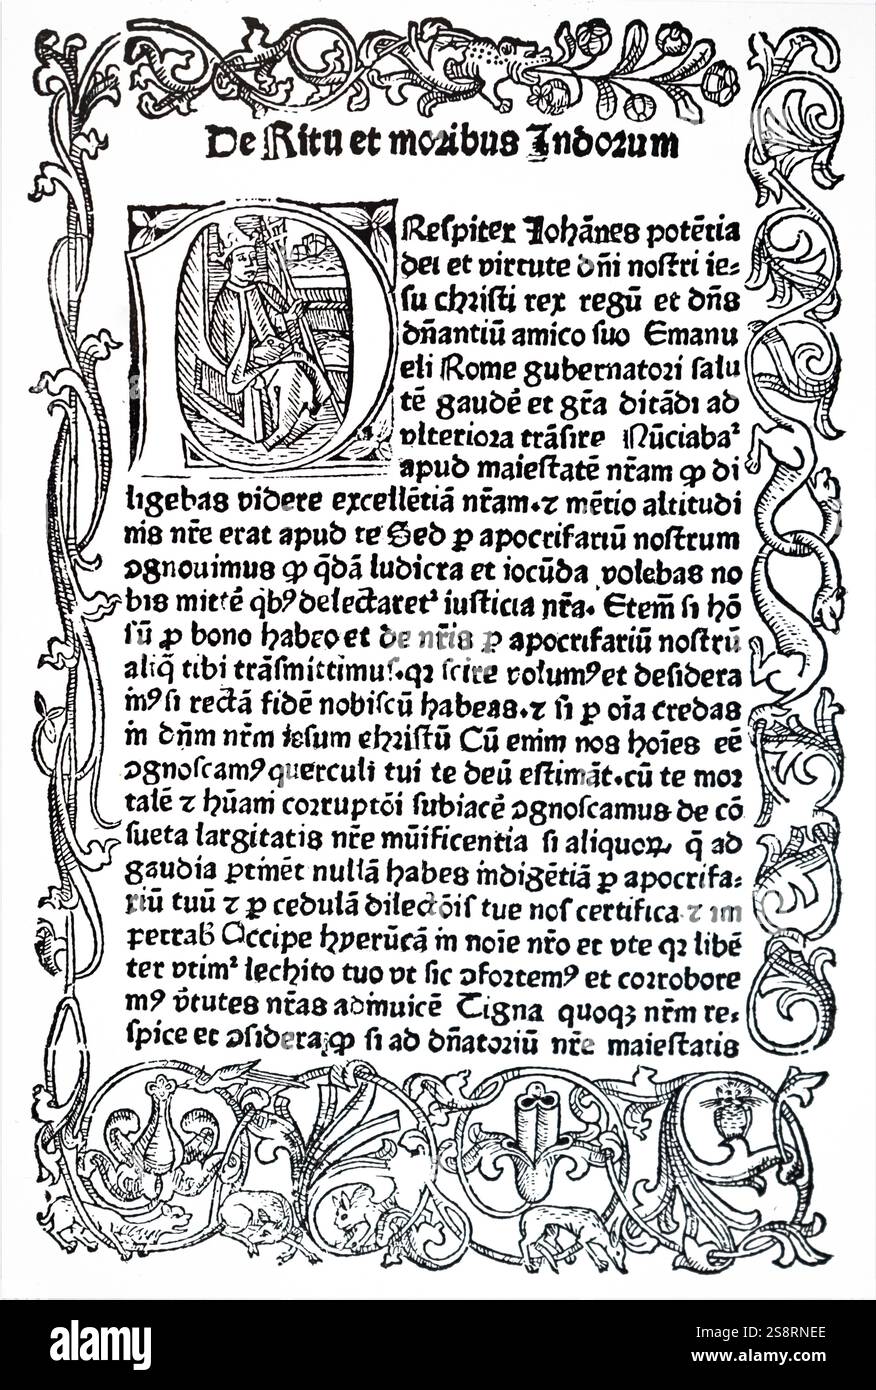 De Ritu et moribus Indorum
PRespiter Johānes potētia
dei et virtute dñi nostri ie⸗
su christi rex regū et dñs
dñantiū amico suo Emanu
eli Rome gubernatori salu
tē gaudē et gr̄a ditādi ad
vlteriora trāsire Nūciabaᷣ
apud maiestatē nr̄am ꝙ di
ligebas videre excellētiā nr̄am.⁊ mētio altitudi
nis nr̄e erat apud te Sed ꝑ apocrifariū nostrum
ꝯgnouimus ꝙ q̄dā ludicra et iocūda volebas no
bis mittē qb⁹ delectaretᷣ iusticia nr̄a. Etem̄ si hō
sū ꝑ bono habeo et de nr̄is ꝑ apocrifariū nostrū
aliq̄ tibi trāsmittimus.qꝛ scire volum⁹ et desidera
m⁹ si rectā fidē nobiscū habeas.⁊ si ꝑ oīa credas
in dñm nr̄m iesum christū Cū enim nos hoīes eē
ꝯgnoscam⁹ querculi tui te deū estimāt.cū te moꝛ
talē ⁊ hūam̄ corruptōi subiacē ꝯgnoscamus de cō
sueta largitatis nr̄e mūificentia si aliquoꝝ q̄ ad
gaudia ꝑtinēt nullā habes indigētiā ꝑ apocrifa⸗
riū tuū ⁊ ꝑ cedulā dilectōis tue nos certifica ⁊ im
petrab̄ Accipe hyerūcā in noīe nr̄o et vte qꝛ libē
ter vtimᷣ lechito tuo vt sic ꝯfortem⁹ et corrobore
m⁹ v̄tutes nr̄as adinuicē Tigna quoqꝫ nr̄m re⸗
spice et ꝯsidera ꝙ si ad dñatoriū nr̄e maiestatis
alamy
Image ID: 2S8RNEE
www.alamy.com